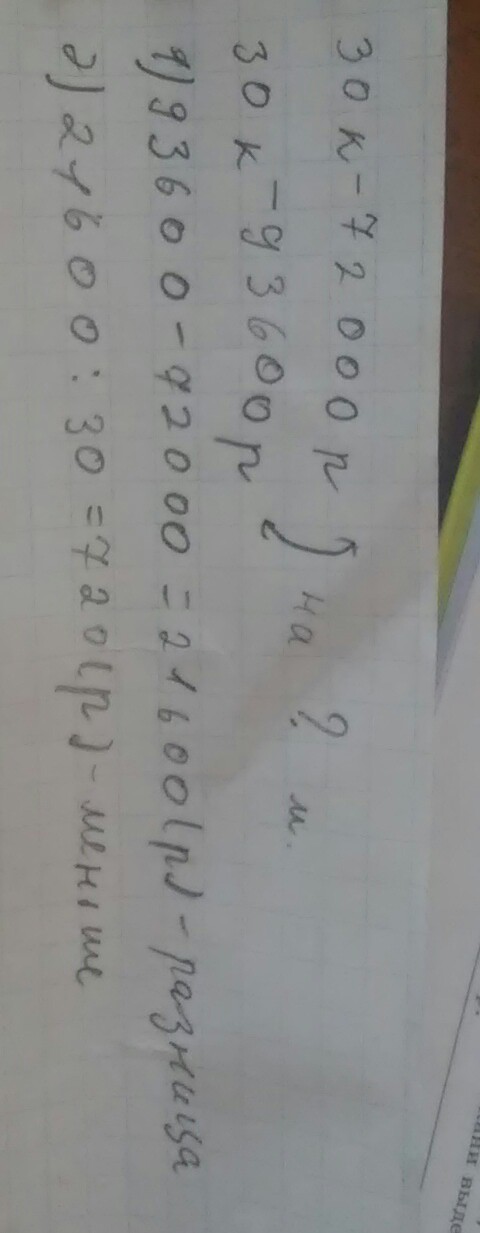 30 к - 72000 р
30 к - 93600 р на ? м.
1) 93600 - 72000 = 21600 (р) - разница
2) 21600 : 30 = 720 (р) - меньше